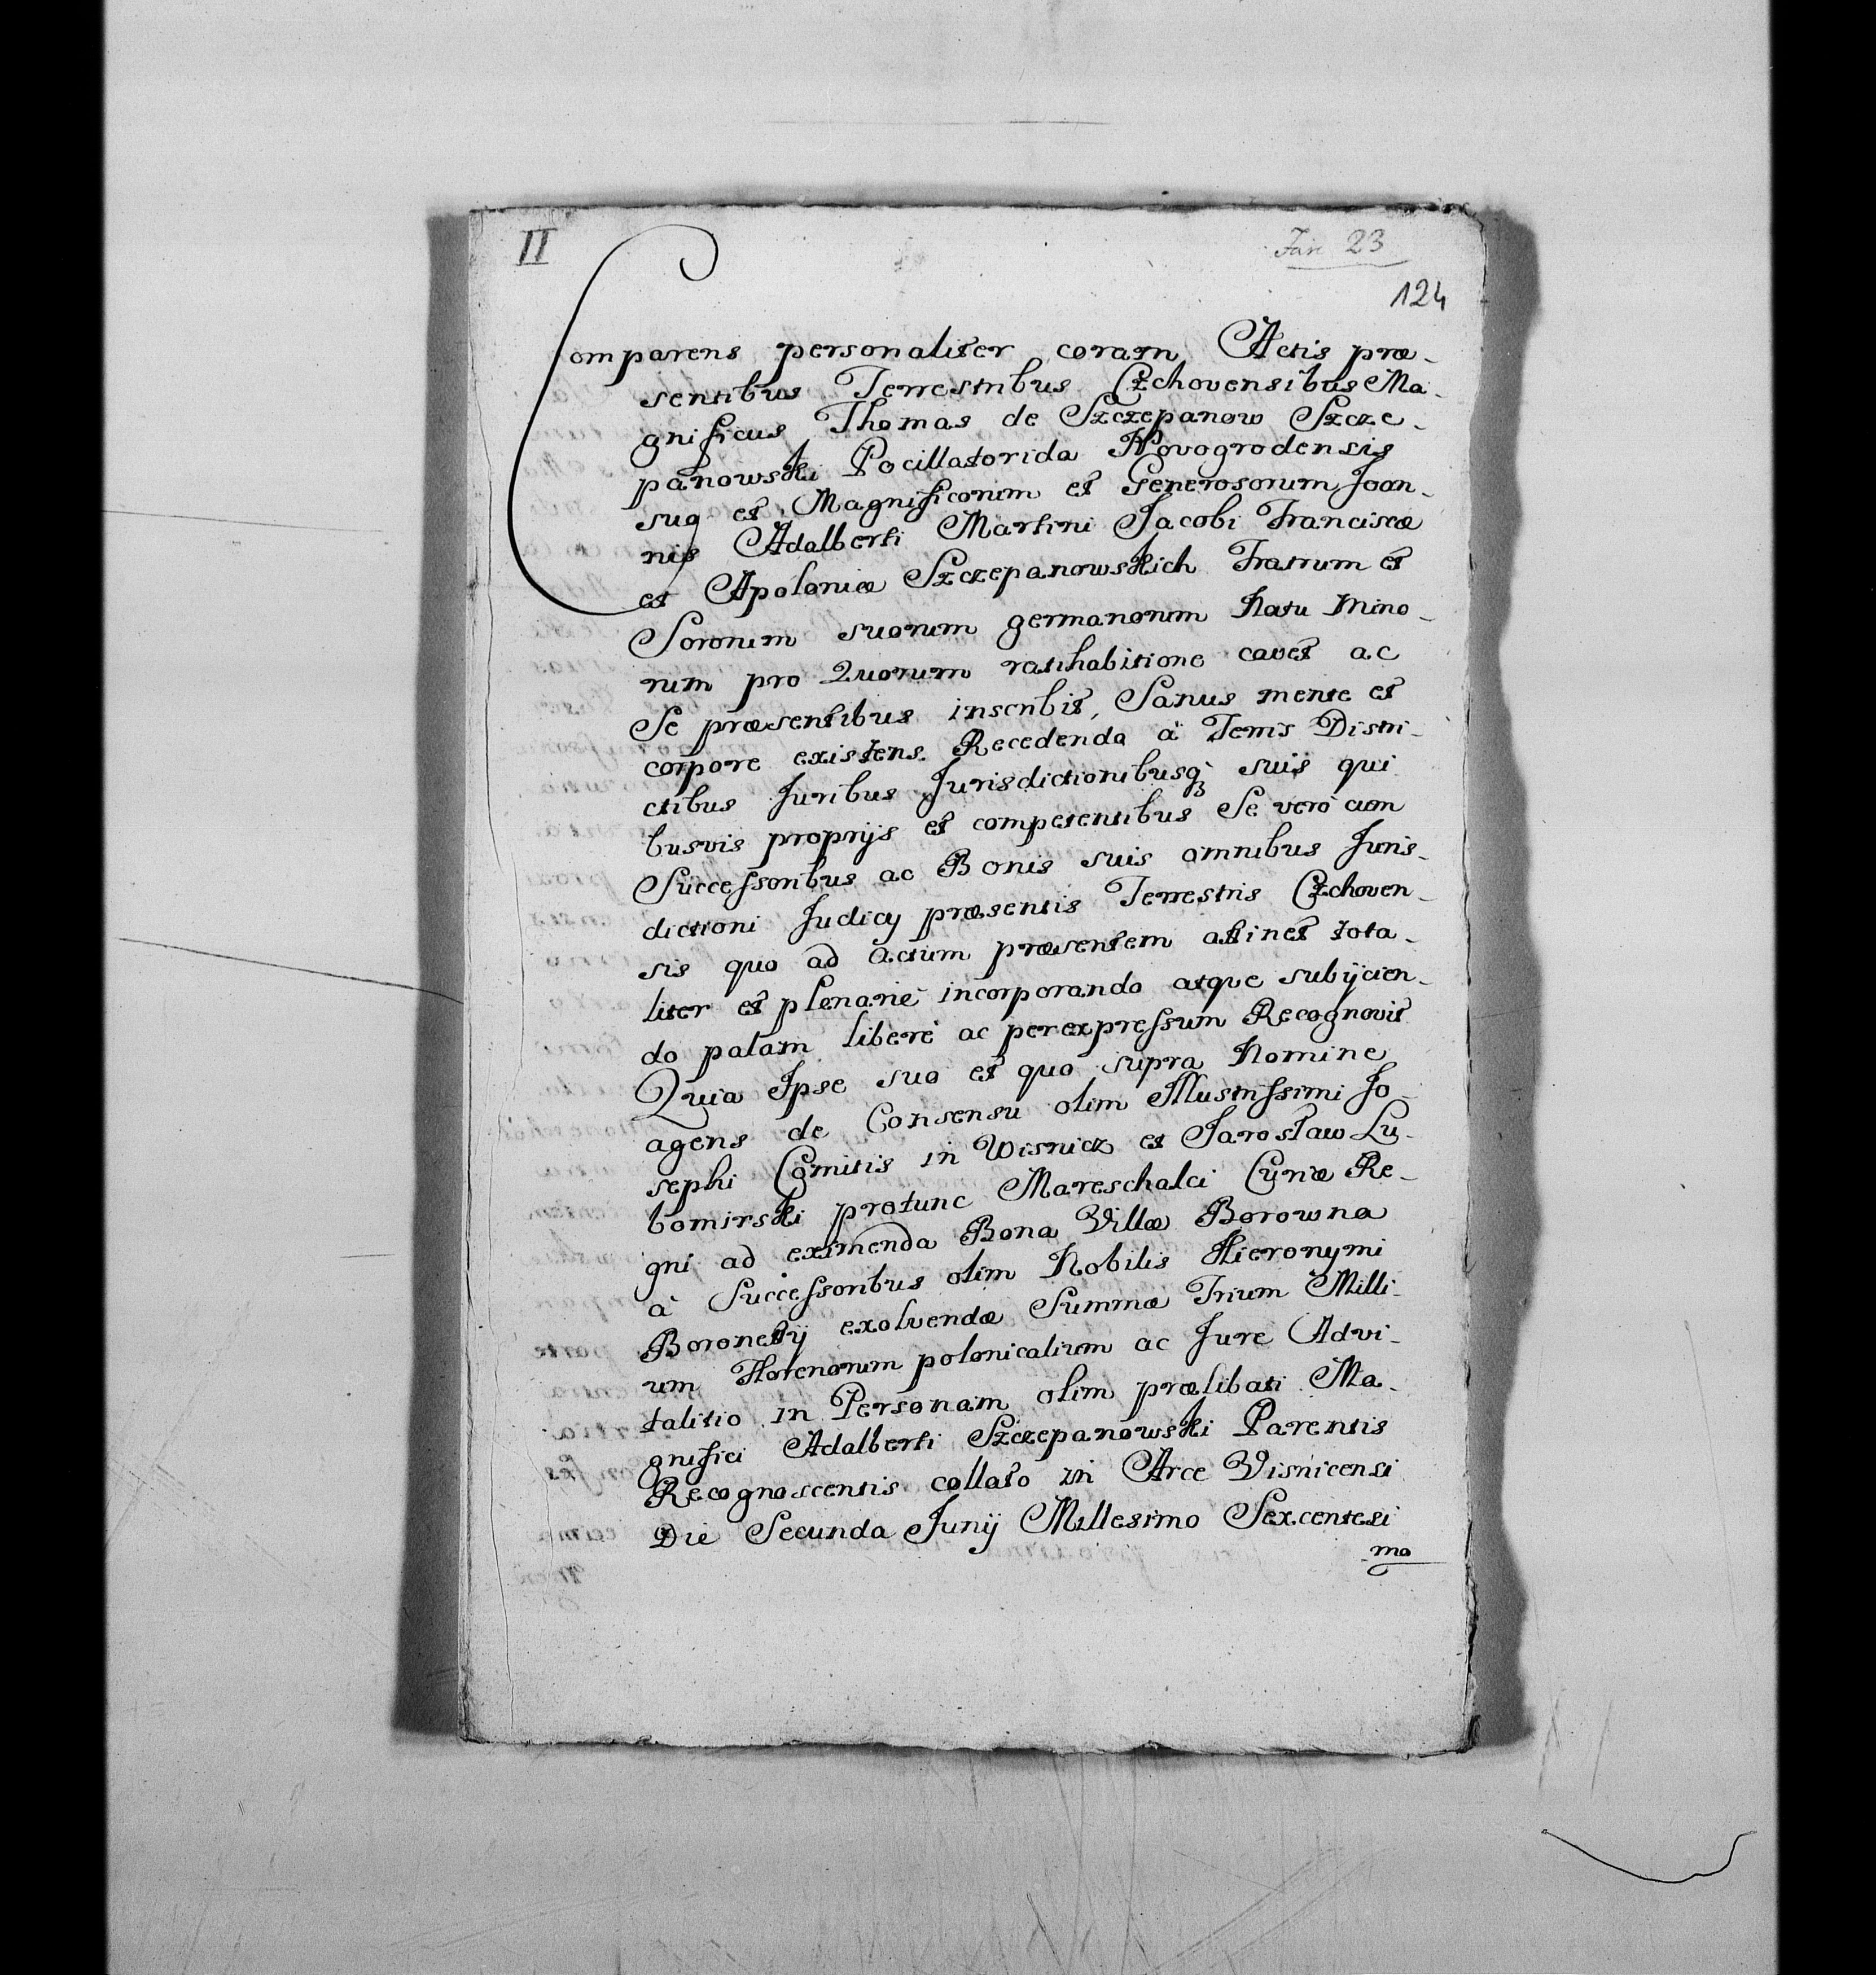 II
Fasc 23
124
Comparens personaliter coram Actis præ-
sentibus Terrestribus Czchovensibus Ma-
gnificus Thomas de Szczepanow Szcze-
panowski Pocillatorida Novogrodensis
suo et Magnificorum et Generosorum Joan-
nis Adalberti Martini Jacobi Franciscæ
et Apoloniæ Szczepanowskich Fratrum et
Sororum suorum germanorum Natu Mino-
rum pro Quorum ratihabitione cavet ac
Se præsentibus inscribit, Sanus mente et
corpore existens. Recedendo à Terris Distri-
ctibus Juribus Jurisdictionibusq3 suis qui
busvis proprijs et competentibus Se verò cum
Successoribus ac Bonis suis omnibus Juris-
dictioni Judicij præsentis Terrestris Czchoven-
sis quo ad Actum præsentem attinet tota-
liter et plenariè incorporando atque subijcien-
do palam liberè ac per expressum Recognovit
Quia Ipse suo et quo supra Nomine
agens de Consensu olim Illustrissimi Jo-
sephi Comitis in Wisnicz et Jarosław Lu-
bomirski protunc Mareschalci Curiæ Re-
gni ad eximenda Bona Villæ Borowna
à Successoribus olim Nobilis Hieronymi
exolvendæ Summæ Trium Milli-
um Florenorum polonicalium ac Jure Advi-
talitio in Personam olim prælibati Ma-
gnifici Adalberti Szczepanowski Parentis
Recognoscentis collato in Arce Visnicensi
Die Secunda Junij Millesimo Sexcentesi
mo